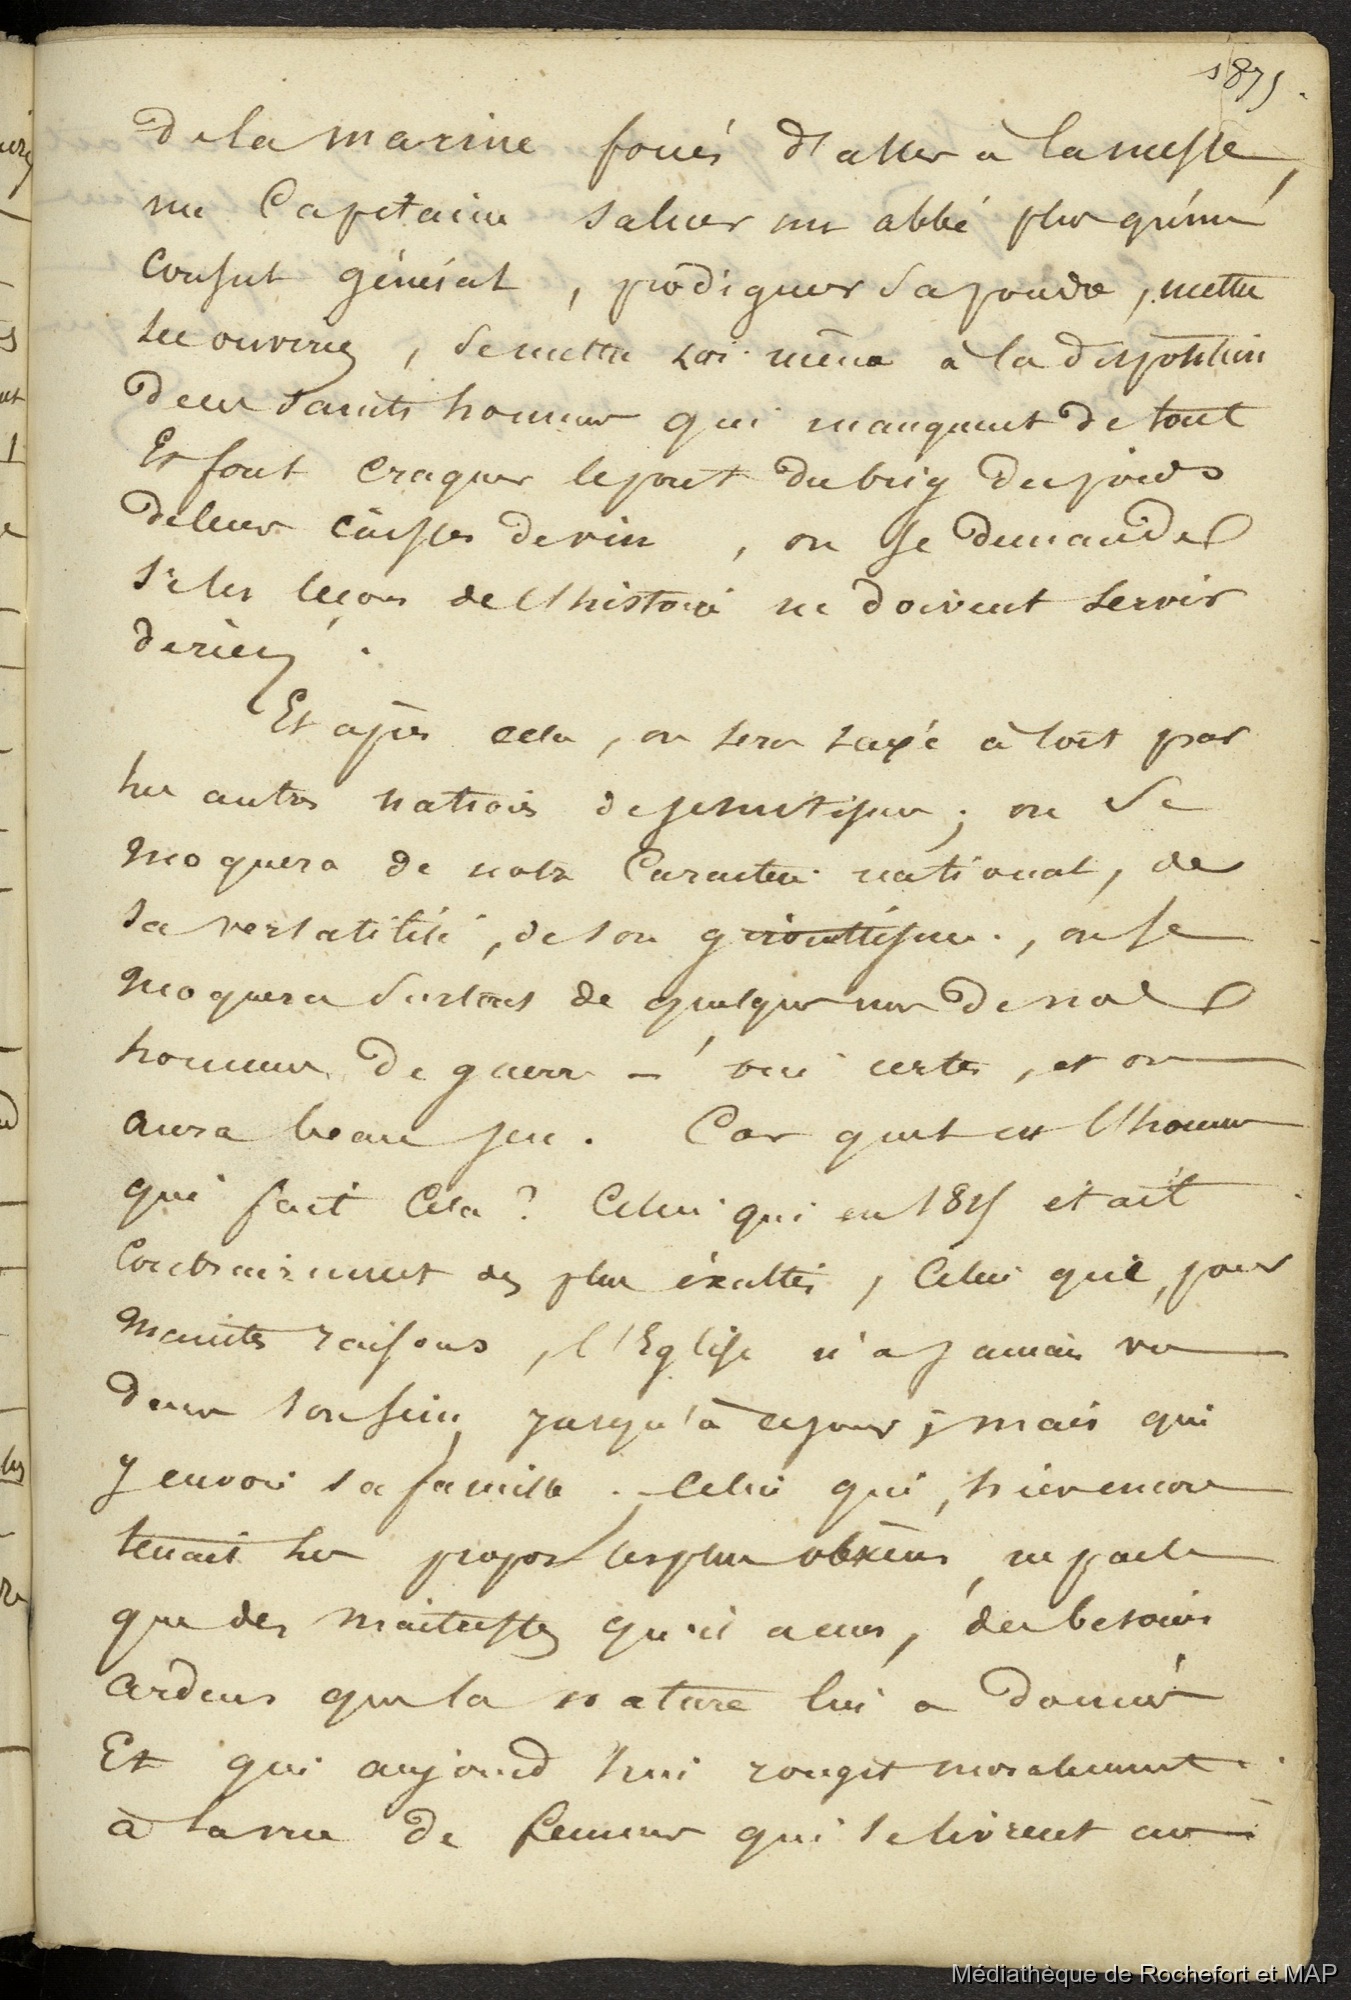 1875.
de la marine forcés d'aller à la messe,
un Capitaine saluer un abbé plus qu'un
Consul général, prodiguer sa poudre, mettre
ses ouvriers, se mettre soi même à la disposition
de ces saints hommes qui manquent de tout
Et font craquer le pont du brig du poids
de leurs caisses de vin, on se demande
si les leçons de l'histoire ne doivent servir
de rien.
Et après cela, on sera taxé à tort par
les autres nations de jesuitisme; on se
moquera de notre Caractère national, de
sa versatilité, de son girouettisme., on se
moquera surtout de quelques uns de nos
hommes de guerre – oui certes, et on
aura beau jeu. Car quel est l'homme
qui fait Cela? Celui qui en 1815 était
Contrairement des plus éxaltés, Celui que, pour
maintes raisons, l'Eglise n'a jamais vu
dans son sein jusqu'à ce jour; mais qui
y envoie sa famille. Celui qui, hier encore
tenait les propos les plus obscens, ne parle
que des maitresses qu'il a eues, des besoins
ardens que la nature lui a donnés
Et qui aujourd'hui rougit moralement
à la vue de femmes qui se livrent au